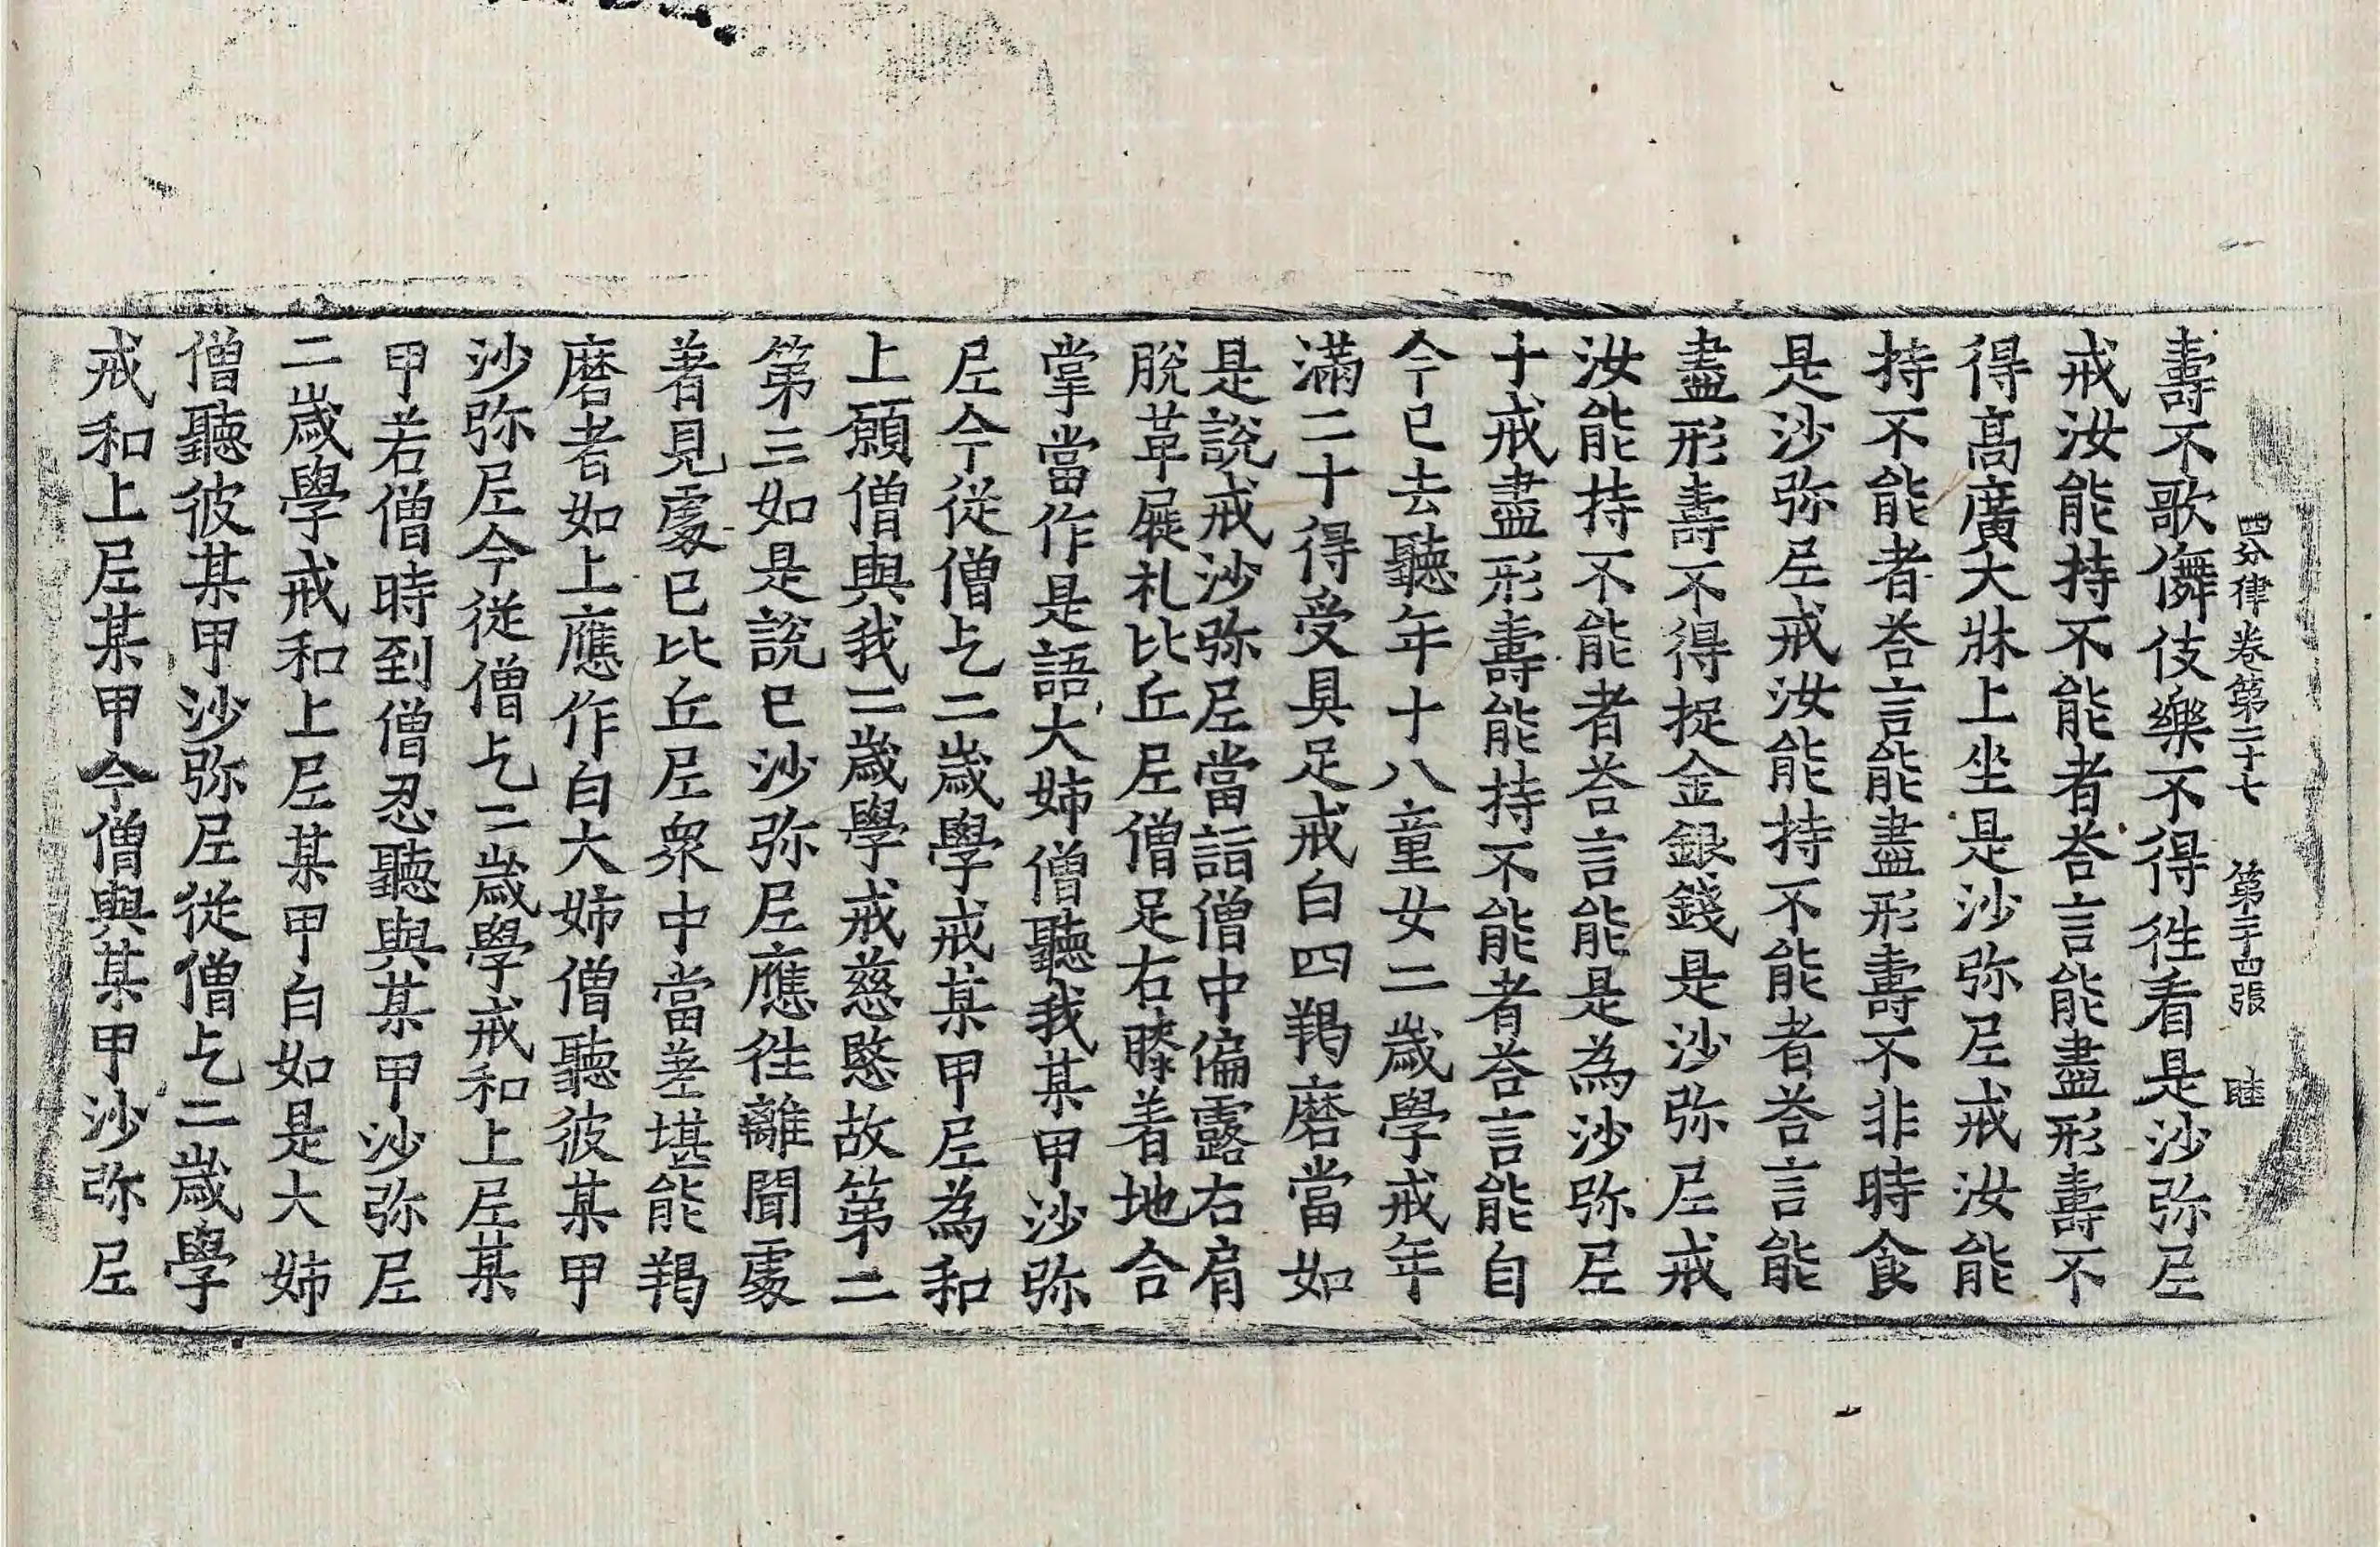 四分律卷第二十七 第三十四張 睦
壽不歌儛伎樂不得徃看是沙弥尼
戒汝能持不能者荅言能盡形壽不
得髙廣大牀上坐是沙弥尼戒汝能
持不能者荅言能盡形壽不非時食
是沙弥尼戒汝能持不能者荅言能
盡形壽不得捉金銀錢是沙弥尼戒
汝能持不能者荅言能是為沙弥尼
十戒盡形壽能持不能者荅言能自
今已去聽年十八童女二歲學戒年
滿二十得受具足戒白四羯磨當如
是說戒沙弥尼當詣僧中偏露右肩
脫革屣礼比丘尼僧足右膝着地合
掌當作是語大姊僧聽我某甲沙弥
尼今從僧乞二歲學戒某甲尼為和
上願僧與我二歲學戒慈愍故第二
第三如是說已沙弥尼應徃離聞處
著見處已比丘尼衆中當差堪能羯
磨者如上應作白大姊僧聽彼某甲
沙弥尼今從僧乞二歲學戒和上尼某
甲若僧時到僧忍聽與某甲沙弥尼
二歲學戒和上尼某甲白如是大姊
僧聽彼某甲沙弥尼從僧乞二歲學
戒和上尼某甲今僧與某甲沙弥尼